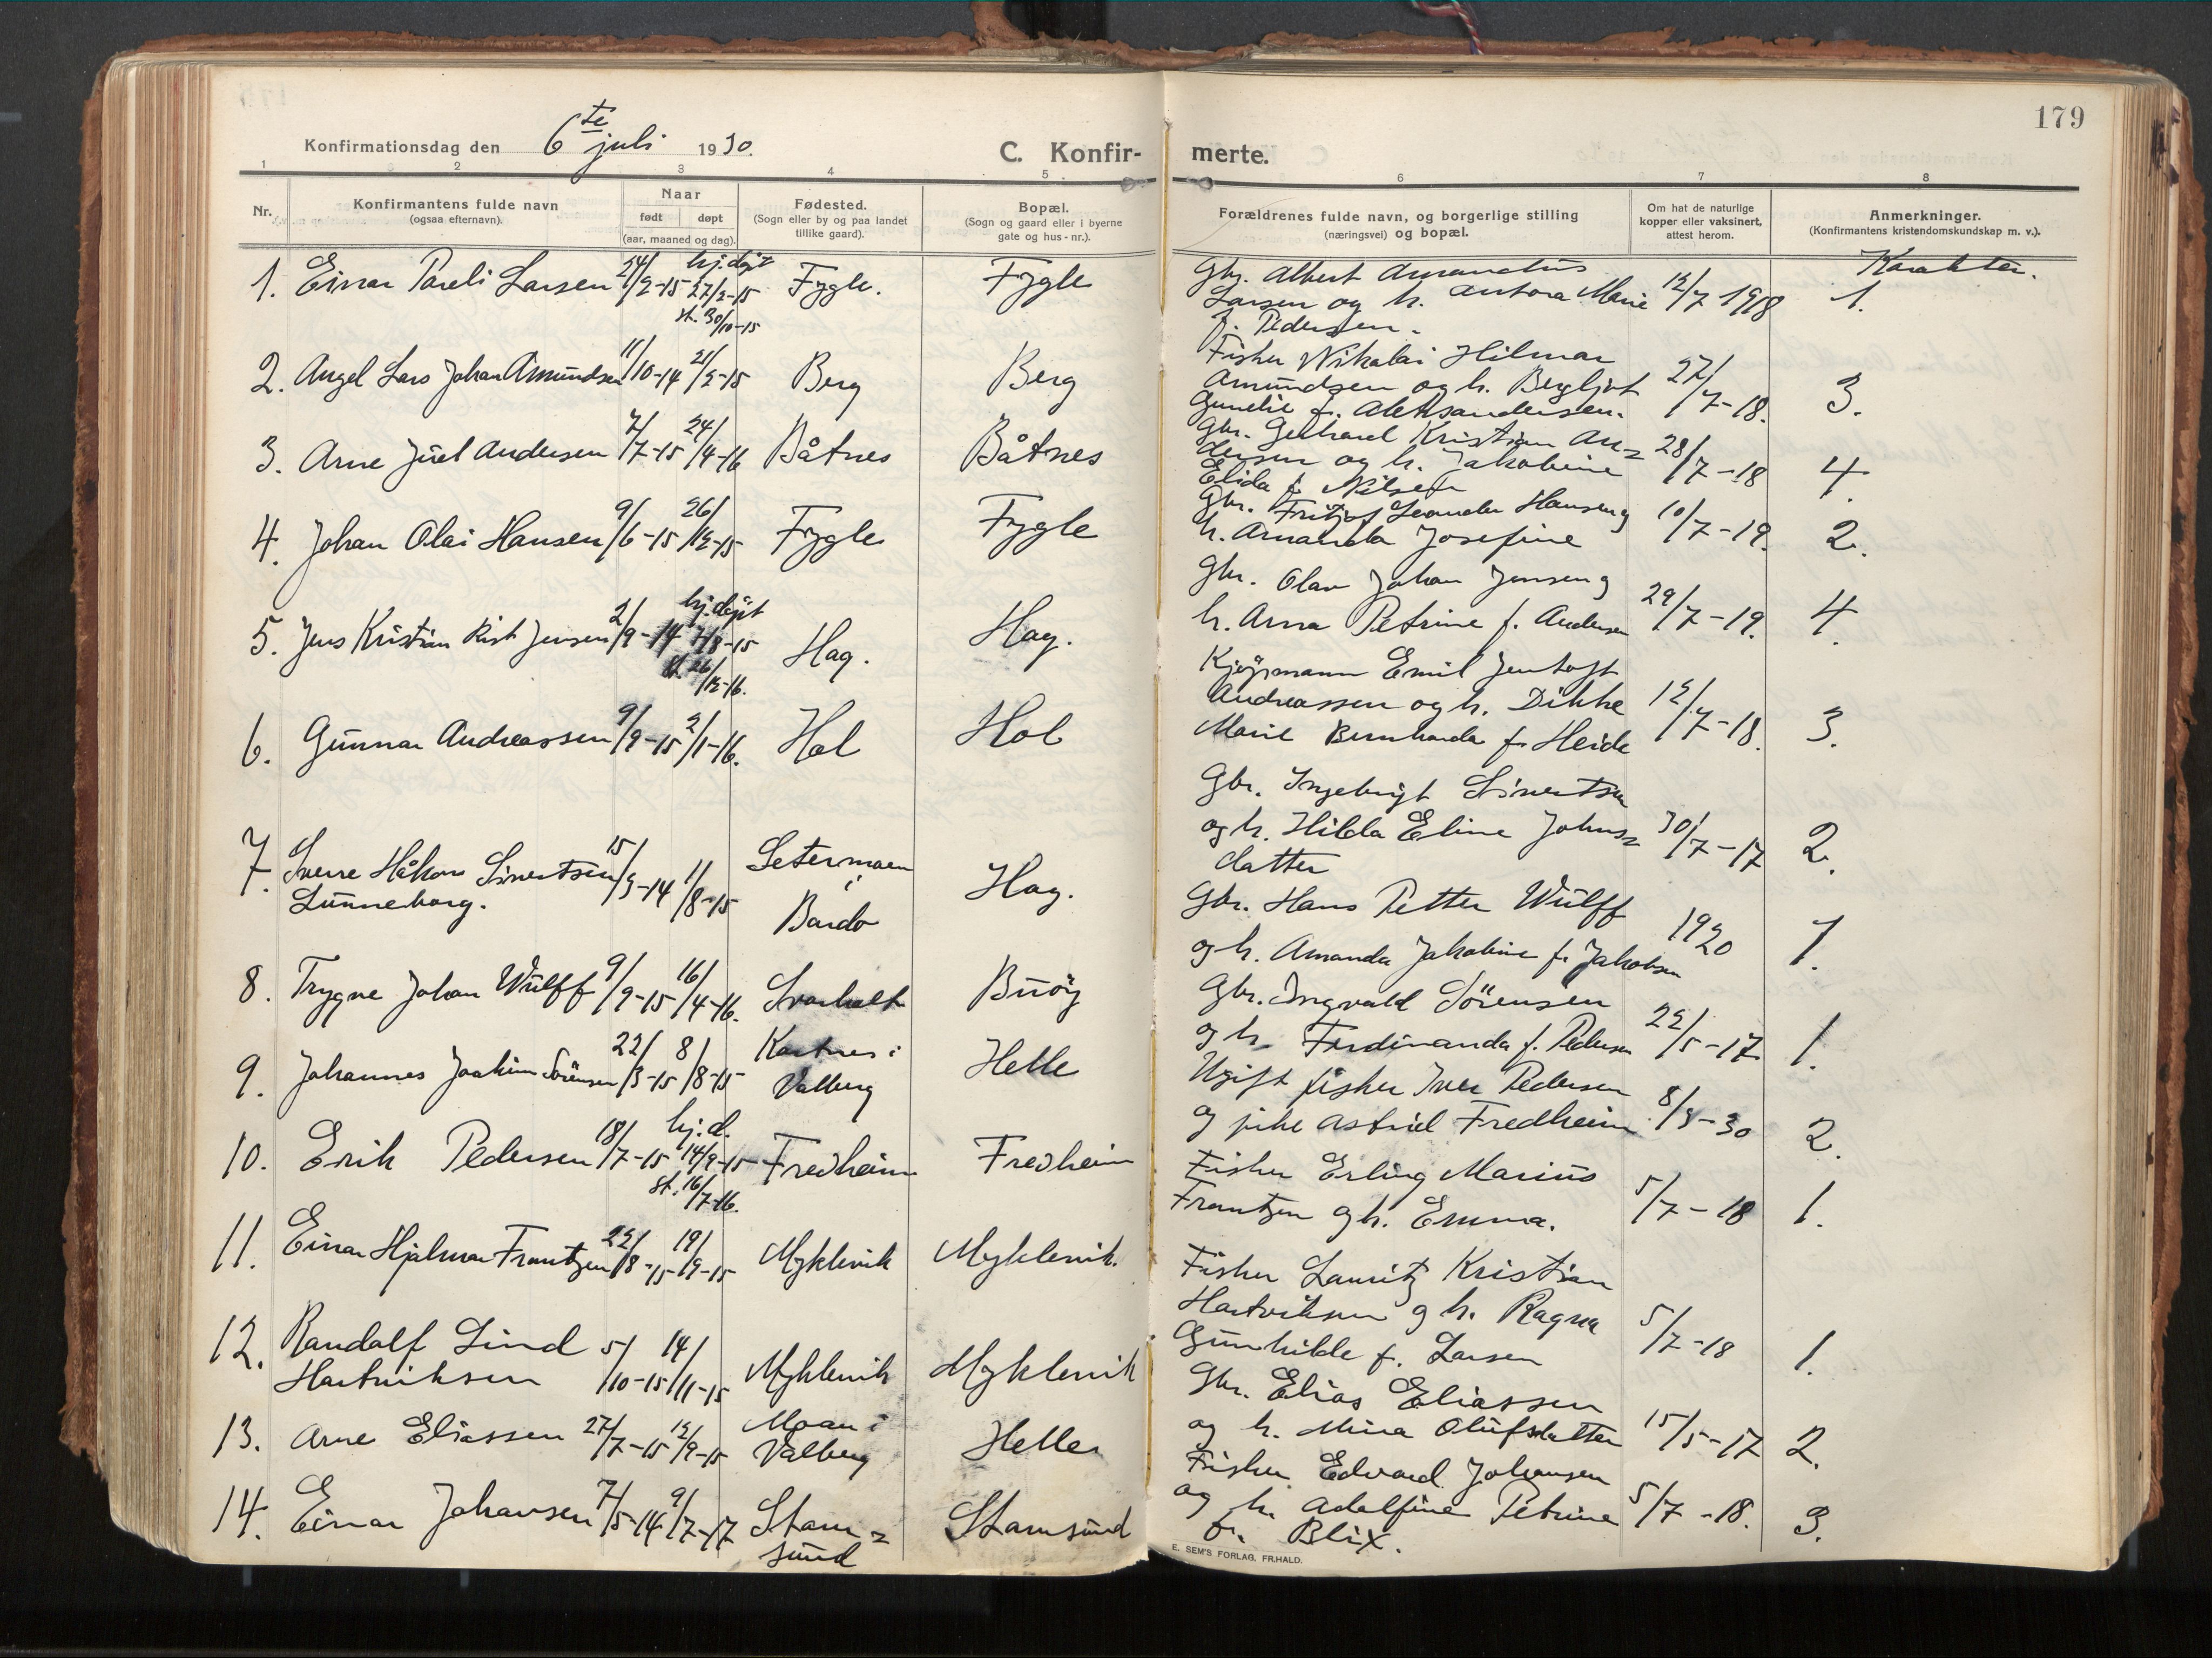 179
Konfirmationsdag den 6te juli 1930.
C. Konfir-merte.
1 2 3 4 5 6 7 8
Nr.
Konfirmantens fulde navn
(ogsaa efternavn).
Naar
født døpt
(aar, maaned og dag).
Fødested.
(Sogn eller by og paa landet
tillike gaard).
Bopæl.
(Sogn og gaard eller i byerne
gate og hus-nr.).
Forældrenes fulde navn, og borgerlige stilling
(næringsvei) og bopæl.
Om hat de naturlige
kopper eller vaksinert,
attest herom.
Anmerkninger.
(Konfirmantens kristendomskundskap m. v.).
Karakter.
1. Einar Pareli Larsen 24/2-15 hj.døpt 27/2-15 st. 30/10-15 Fygle. Fygle
Gbr. Albert Amandus
Larsen og h. Antora Marie
f. Pedersen.
12/7 1918 1.
2. Angel Lars Johan Amundsen 11/10-14 21/2-15 Berg Berg
Fisker Nikolai Hilmar
Amundsen og h. Bergljot
Gunelie f. Aleksandersen.
27/7-18. 3.
3. Arne Juel Andersen 7/7-15 24/4-16 Båtnes Båtnes
Gbr. Gerhard Kristian An-
dersen og h. Jakobine
Elida f. Nilsen
28/7-18 4.
4. Johan Olai Hansen 9/6-15 26/12-15 Fygle Fygle
Gbr. Fritjof Leander Hansen og
h. Amanda Josefine
10/7-19. 2.
5. Jens Kristian Rist Jensen 2/9-14 hj.døpt 7/8-15 st 26/12-16. Hag. Hag.
Gbr. Olav Johan Jensen og
h. Arna Petrine f. Andersen
29/7-19. 4.
6. Gunnar Andreassen 9/9-15 2/1-16. Hol Hol
Kjøpmann Emil Jentoft
Andreassen og h. Dikke
Marie Bernharda f. Heide
12/7-18. 3.
7. Sverre Håkon Sivertsen
Lunneborg.
15/3-14 1/8-15
Setermoen
i
Bardo
Hag.
Gbr. Ingebrigt Sivertsen
og h. Hilda Eline Johns-
datter
30/7-17 2.
8. Trygve Johan Wulff 9/9-15 16/4-16. Svarholt Buøy
Gbr. Hans Petter Wulff
og h. Amanda Jakobine f. Jakobsen
1920 1.
9. Johannes Joakim Sørensen 22/3-15 8/8-15
Kartnes i
Valberg
Helle
Gbr. Ingvald Sørensen
og h. Ferdinanda f. Pedersen
22/5-17. 1.
10. Erik Pedersen 18/7-15 hj.d. 14/9-15 st. 16/7-16. Fredheim Fredheim
Ugift fisker Iver Pedersen
og pike Astrid Fredheim
8/3-30 2.
11. Einar Hjalmar Frantzen 22/8-15 19/9-15 Myklevik Myklevik.
Fisker Erling Marius
Frantzen og h. Emma.
5/7-18 1.
12. Randolf Lind
Hartviksen
5/10-15 14/11-15 Myklevik Myklevik
Fisker Lauritz Kristian
Hartviksen og h. Ragna
Gunhilde f. Larsen
5/7-18 1.
13. Arne Eliassen 27/7-15 12/9-15
Moan i
Valberg
Helle
Gbr. Elias Eliassen
og h. Mina Olufsdatter
15/5-17 2.
14. Einar Johansen 7/5-14 9/7-17
Stam-
sund
Stamsund
Fisker Edvard Johansen
og h. Adolfine Petrine
f. Blix.
5/7-18. 3.
E. SEM'S FORLAG, FR.HALD.